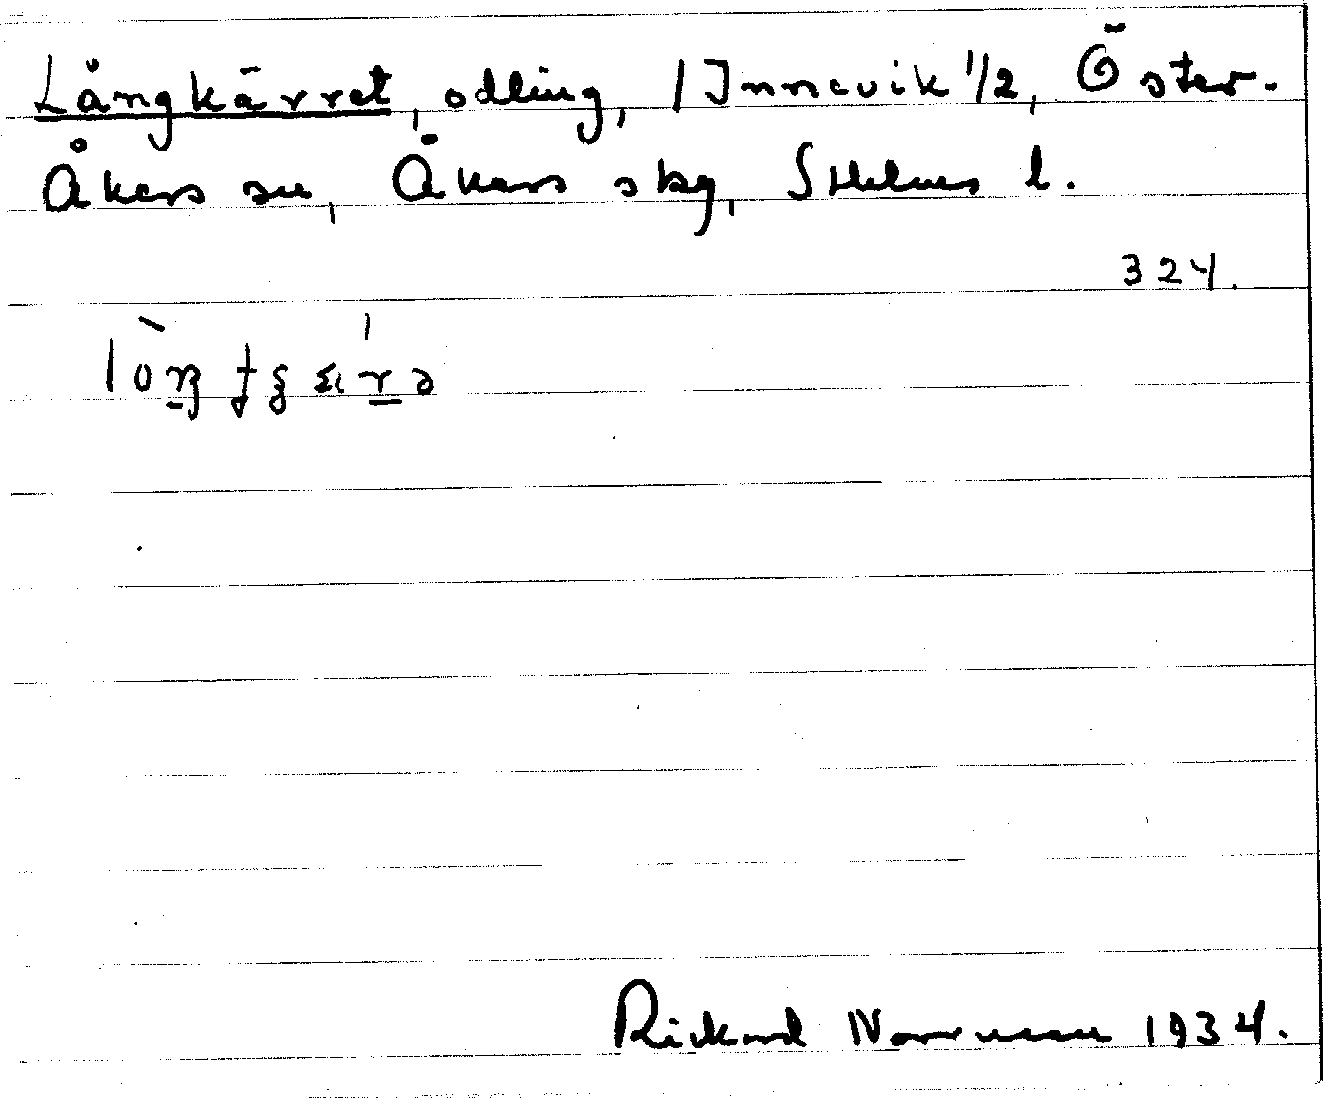 Långkärret, odling, / Innevik 1/2, Öster-
Åkers sn, Åkers skg, Sthlms l.
324.
Rickard Norrman 1934.